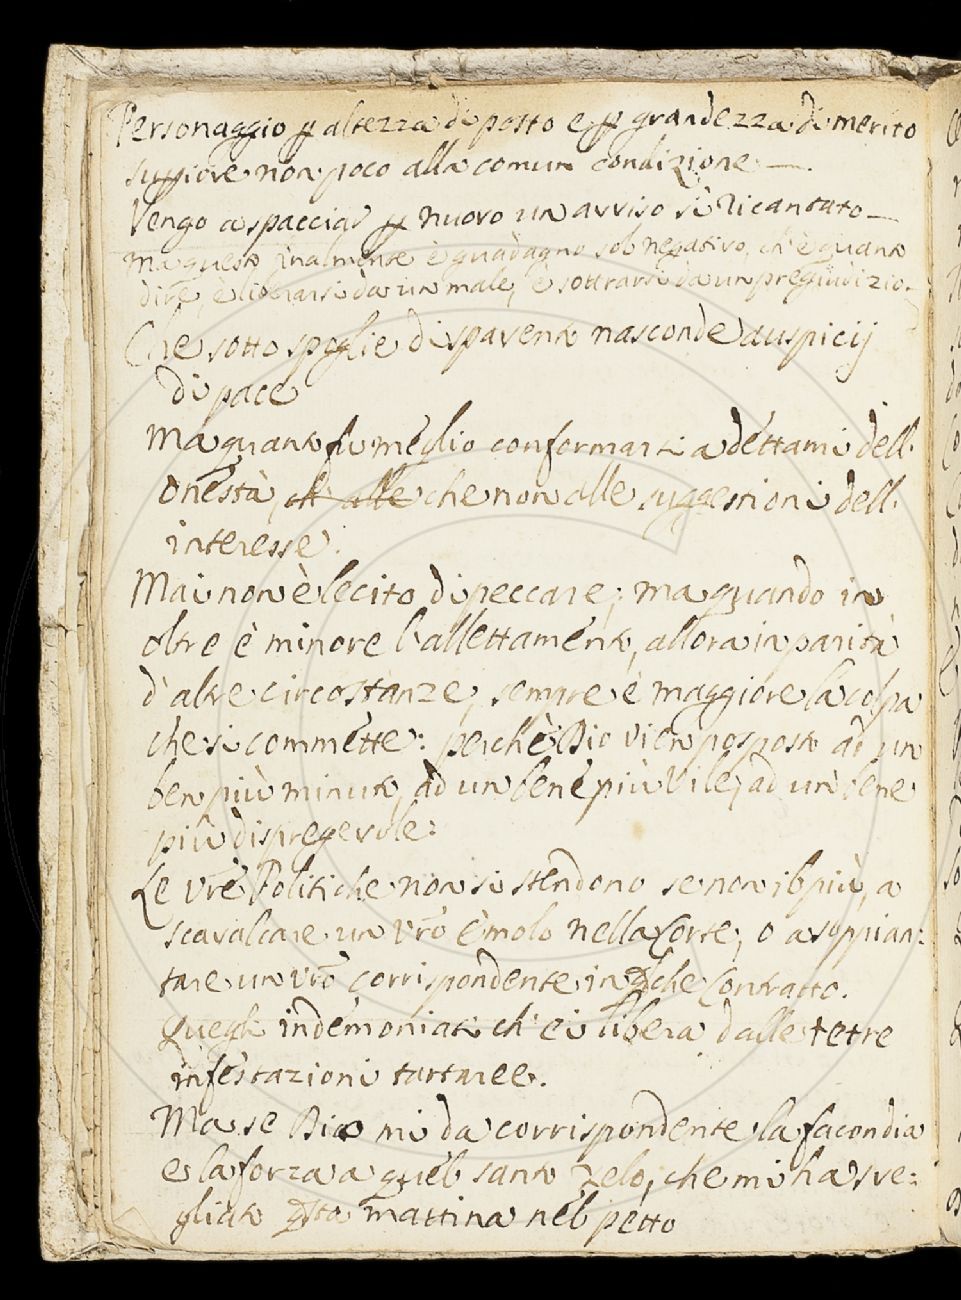 Personaggio p altezza di posto e p grandezza di merito
supiore non poco alla comun condizione —.
Vengo a spacciar p nuovo un avviso sì ricantato —
ma questo finalmente è guadagno sol negativo, ch'è quanto
dire, è liberarsi da un male, è sottrarsi da un pregiudizio.
Che sotto spoglie di spavento nasconde auspicij
di pace
Ma quanto fu meglio conformarsi a dettami dell'
onestà, che non alle suggestioni dell'
interesse.
Mai non è lecito di peccare; ma quando in
oltre è minore l'allettamento, allora in parità
d'altre circostanze, sempre è maggiore la colpa
che si commette: perchè Dio vien posposto ad un
ben più minuto, ad un bene più vile, ad un bene
più dispregevole:
Le vre Politiche non si stendono se non il più, a
scavalcare un vro emolo nella Corte, o a soppian:
tare un vro corrispondente in qche Contratto.
Quegli indemoniati ch'ei libera dalle tetre
infestazioni tartaree.
Ma se Dio mi da corrispondente la facondia
e la forza a quel santo zelo, che mi ha sve:
gliato qsta mattina nel petto